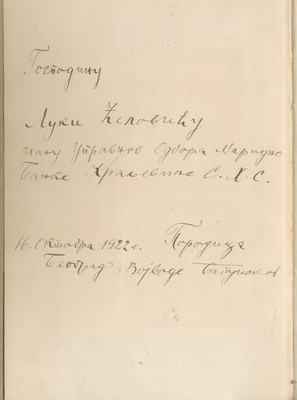 Господину
Луки Ћеловићу
члану Управног Одбора Народне
Банке Краљевине С.Х.С.
16. Октобра 1922 г. Породица
Београд Војводе Бабунског